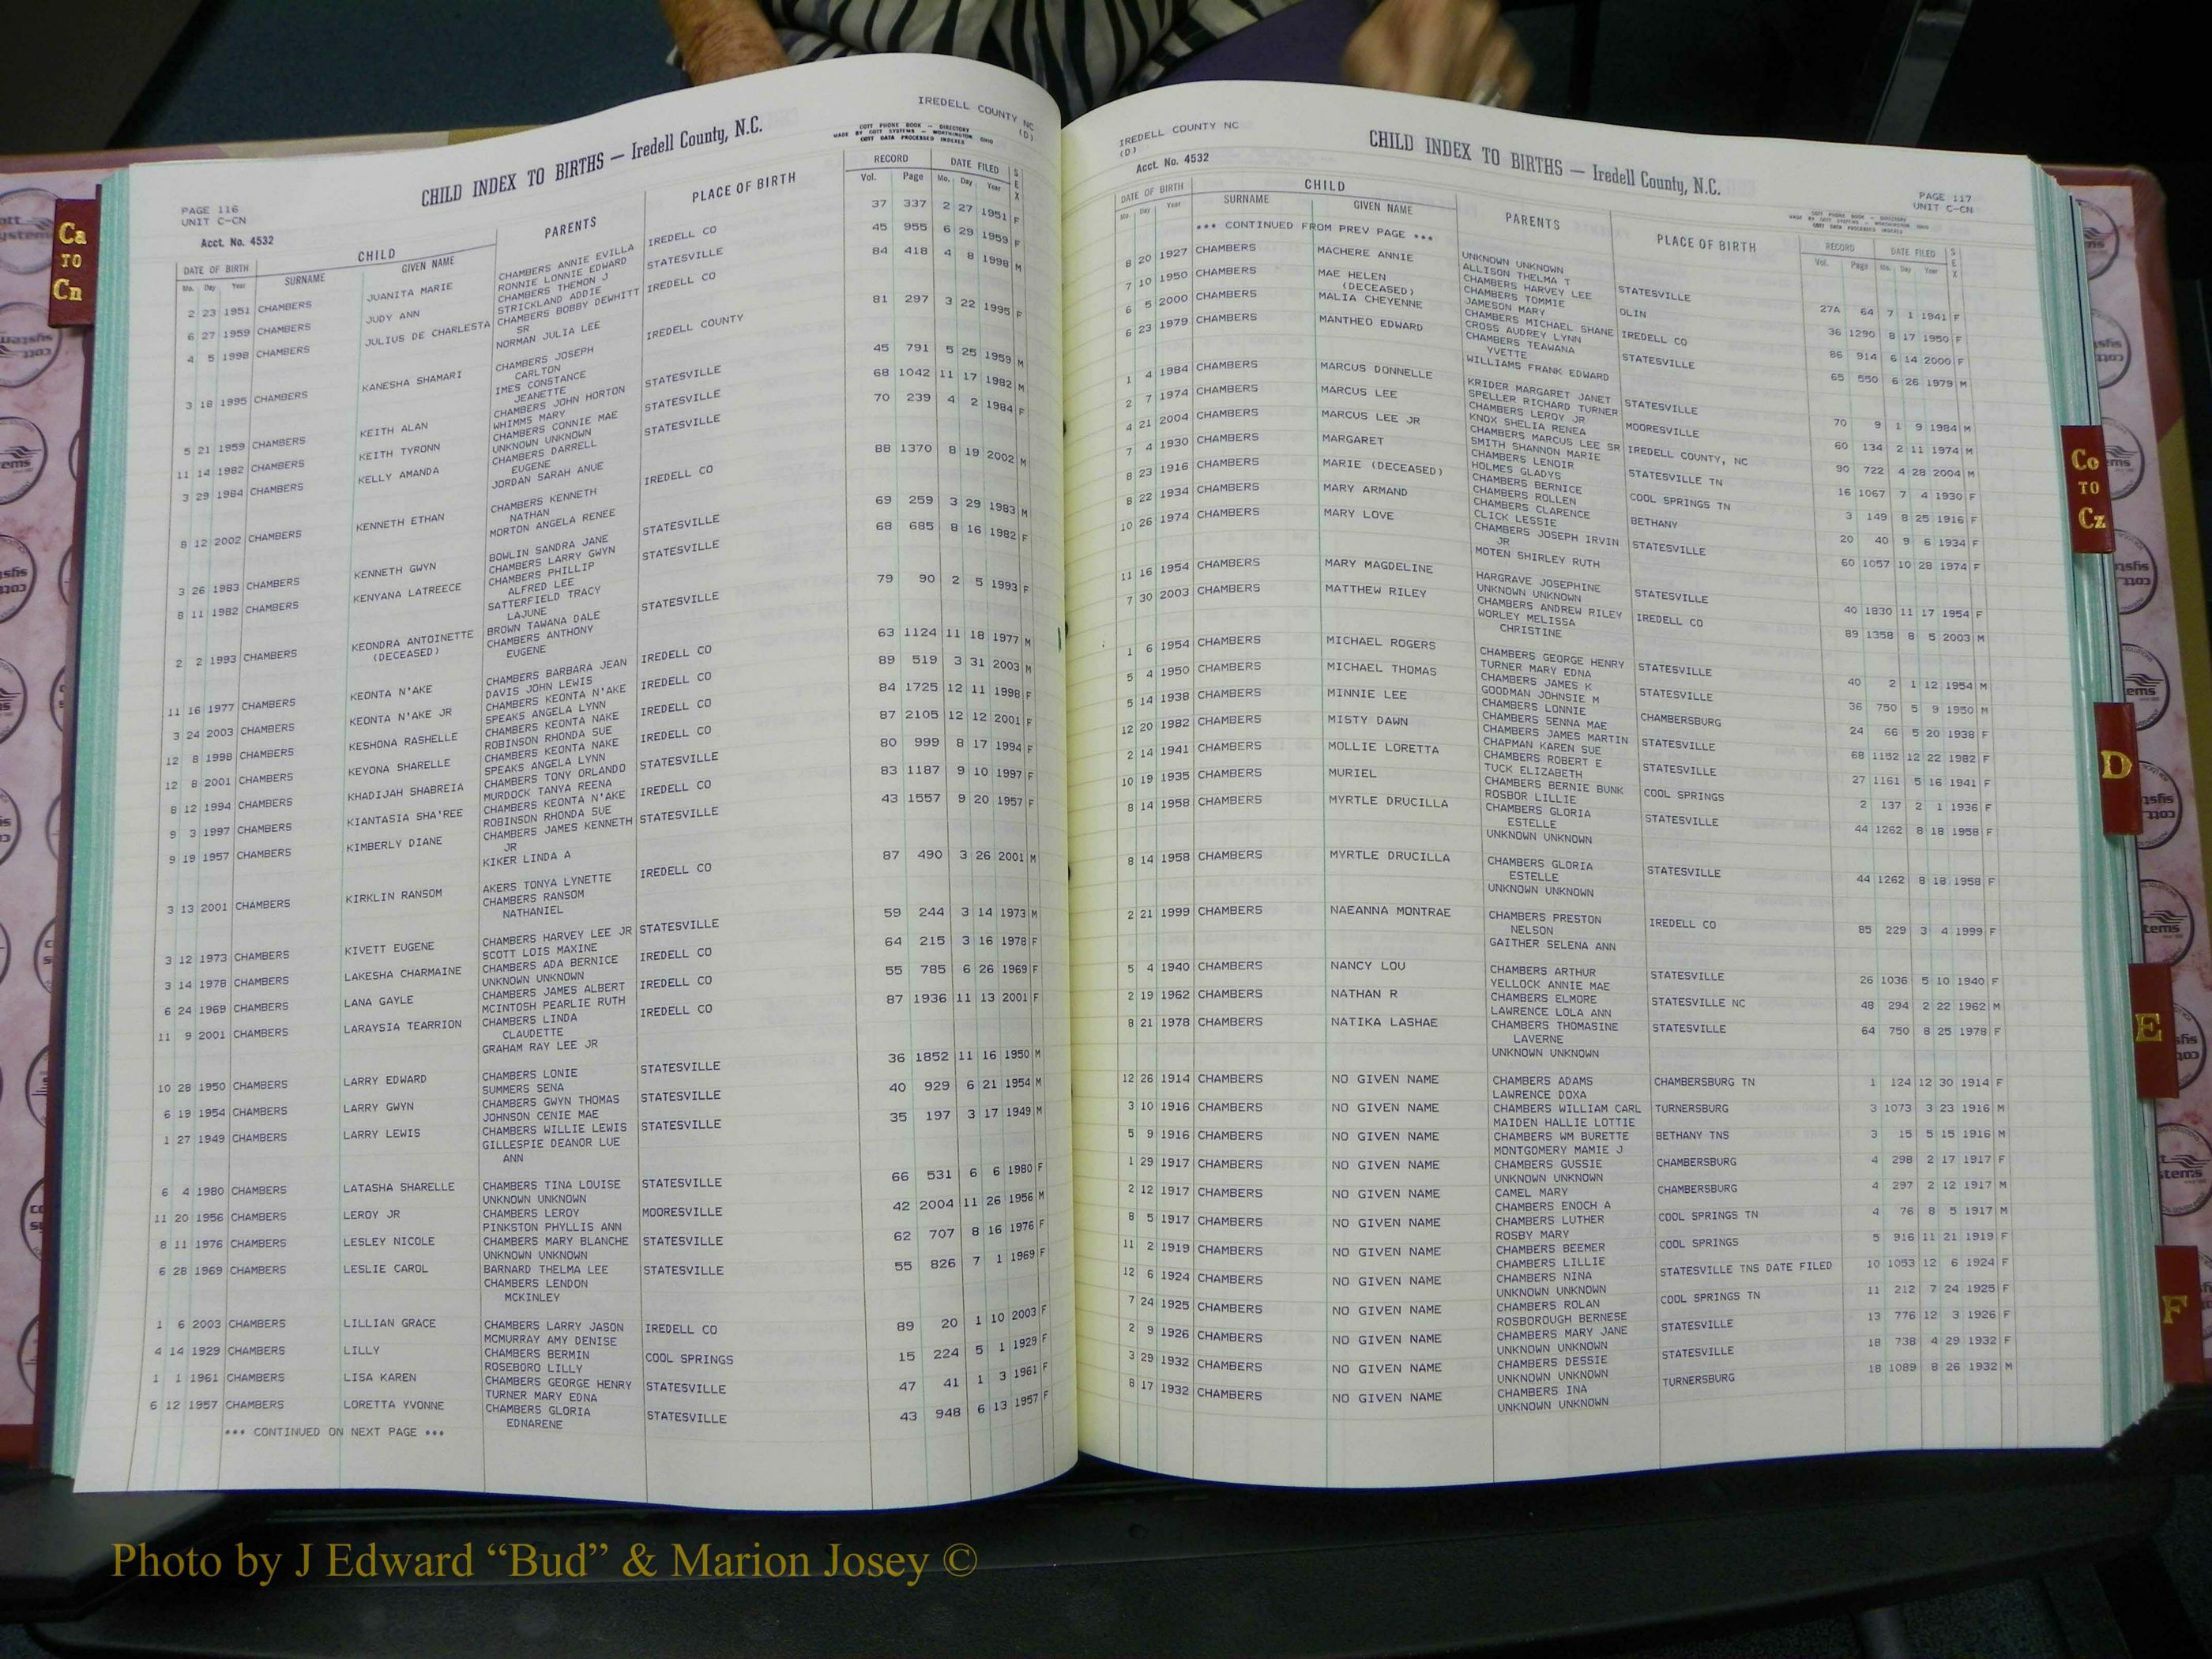 IREDELL COUNTY NC
(D)
CHILD INDEX TO BIRTHS — Iredell County, N.C.
COTT PHONE BOOK - DIRECTORY
MADE BY COTT SYSTEMS - WORTHINGTON OHIO
COTT DATA PROCESSED INDEXES
PAGE 116
UNIT C-CN
Acct. No. 4532
DATE OF BIRTH CHILD PARENTS PLACE OF BIRTH RECORD DATE FILED SEX
Mo. Day Year SURNAME GIVEN NAME Vol. Page Mo. Day Year
2 23 1951 CHAMBERS JUANITA MARIE CHAMBERS ANNIE EVILLA IREDELL CO 37 337 2 27 1951 F
RONNIE LONNIE EDWARD
6 27 1959 CHAMBERS JUDY ANN CHAMBERS THEMON J STATESVILLE 45 955 6 29 1959 F
STRICKLAND ADDIE
4 5 1998 CHAMBERS JULIUS DE CHARLESTA CHAMBERS BOBBY DEWHITT IREDELL CO 84 418 4 8 1998 M
SR
NORMAN JULIA LEE
3 18 1995 CHAMBERS KANESHA SHAMARI CHAMBERS JOSEPH IREDELL COUNTY 81 297 3 22 1995 F
CARLTON
IMES CONSTANCE
JEANETTE
5 21 1959 CHAMBERS KEITH ALAN CHAMBERS JOHN HORTON STATESVILLE 45 791 5 25 1959 M
WHIMMS MARY
11 14 1982 CHAMBERS KEITH TYRONN CHAMBERS CONNIE MAE STATESVILLE 68 1042 11 17 1982 M
UNKNOWN UNKNOWN
3 29 1984 CHAMBERS KELLY AMANDA CHAMBERS DARRELL STATESVILLE 70 239 4 2 1984 F
EUGENE
JORDAN SARAH ANUE
8 12 2002 CHAMBERS KENNETH ETHAN CHAMBERS KENNETH IREDELL CO 88 1370 8 19 2002 M
NATHAN
MORTON ANGELA RENEE
3 26 1983 CHAMBERS KENNETH GWYN BOWLIN SANDRA JANE STATESVILLE 69 259 3 29 1983 M
CHAMBERS LARRY GWYN
8 11 1982 CHAMBERS KENYANA LATREECE CHAMBERS PHILLIP STATESVILLE 68 685 8 16 1982 F
ALFRED LEE
SATTERFIELD TRACY
LAJUNE
2 2 1993 CHAMBERS KEONDRA ANTOINETTE BROWN TAWANA DALE STATESVILLE 79 90 2 5 1993 F
(DECEASED) CHAMBERS ANTHONY
EUGENE
11 16 1977 CHAMBERS KEONTA N'AKE CHAMBERS BARBARA JEAN IREDELL CO 63 1124 11 18 1977 M
DAVIS JOHN LEWIS
3 24 2003 CHAMBERS KEONTA N'AKE JR CHAMBERS KEONTA N'AKE IREDELL CO 89 519 3 31 2003 M
SPEAKS ANGELA LYNN
12 8 1998 CHAMBERS KESHONA RASHELLE CHAMBERS KEONTA NAKE IREDELL CO 84 1725 12 11 1998 F
ROBINSON RHONDA SUE
12 8 2001 CHAMBERS KEYONA SHARELLE CHAMBERS KEONTA NAKE IREDELL CO 87 2105 12 12 2001 F
SPEAKS ANGELA LYNN
8 12 1994 CHAMBERS KHADIJAH SHABREIA CHAMBERS TONY ORLANDO STATESVILLE 80 999 8 17 1994 F
MURDOCK TANYA REENA
9 3 1997 CHAMBERS KIANTASIA SHA'REE CHAMBERS KEONTA N'AKE IREDELL CO 83 1187 9 10 1997 F
ROBINSON RHONDA SUE
9 19 1957 CHAMBERS KIMBERLY DIANE CHAMBERS JAMES KENNETH STATESVILLE 43 1557 9 20 1957 F
JR
KIKER LINDA A
3 13 2001 CHAMBERS KIRKLIN RANSOM AKERS TONYA LYNETTE IREDELL CO 87 490 3 26 2001 M
CHAMBERS RANSOM
NATHANIEL
3 12 1973 CHAMBERS KIVETT EUGENE CHAMBERS HARVEY LEE JR STATESVILLE 59 244 3 14 1973 M
SCOTT LOIS MAXINE
3 14 1978 CHAMBERS LAKESHA CHARMAINE CHAMBERS ADA BERNICE IREDELL CO 64 215 3 16 1978 F
UNKNOWN UNKNOWN
6 24 1969 CHAMBERS LANA GAYLE CHAMBERS JAMES ALBERT IREDELL CO 55 785 6 26 1969 F
MCINTOSH PEARLIE RUTH
11 9 2001 CHAMBERS LARAYSIA TEARRION CHAMBERS LINDA IREDELL CO 87 1936 11 13 2001 F
CLAUDETTE
GRAHAM RAY LEE JR
10 28 1950 CHAMBERS LARRY EDWARD CHAMBERS LONIE STATESVILLE 36 1852 11 16 1950 M
SUMMERS SENA
6 19 1954 CHAMBERS LARRY GWYN CHAMBERS GWYN THOMAS STATESVILLE 40 929 6 21 1954 M
JOHNSON CENIE MAE
1 27 1949 CHAMBERS LARRY LEWIS CHAMBERS WILLIE LEWIS STATESVILLE 35 197 3 17 1949 M
GILLESPIE DEANOR LUE
ANN
6 4 1980 CHAMBERS LATASHA SHARELLE CHAMBERS TINA LOUISE STATESVILLE 66 531 6 6 1980 F
UNKNOWN UNKNOWN
11 20 1956 CHAMBERS LEROY JR CHAMBERS LEROY MOORESVILLE 42 2004 11 26 1956 M
PINKSTON PHYLLIS ANN
8 11 1976 CHAMBERS LESLEY NICOLE CHAMBERS MARY BLANCHE STATESVILLE 62 707 8 16 1976 F
UNKNOWN UNKNOWN
6 28 1969 CHAMBERS LESLIE CAROL BARNARD THELMA LEE STATESVILLE 55 826 7 1 1969 F
CHAMBERS LENDON
MCKINLEY
1 6 2003 CHAMBERS LILLIAN GRACE CHAMBERS LARRY JASON IREDELL CO 89 20 1 10 2003 F
MCMURRAY AMY DENISE
4 14 1929 CHAMBERS LILLY CHAMBERS BERMIN COOL SPRINGS 15 224 5 1 1929 F
ROSEBORO LILLY
1 1 1961 CHAMBERS LISA KAREN CHAMBERS GEORGE HENRY STATESVILLE 47 41 1 3 1961 F
TURNER MARY EDNA
6 12 1957 CHAMBERS LORETTA YVONNE CHAMBERS GLORIA STATESVILLE 43 948 6 13 1957 F
EDNARENE
*** CONTINUED ON NEXT PAGE ***
IREDELL COUNTY NC
(D)
Acct. No. 4532
CHILD INDEX TO BIRTHS — Iredell County, N.C.
PAGE 117
UNIT C-CN
COTT PHONE BOOK - DIRECTORY
MADE BY COTT SYSTEMS - WORTHINGTON OHIO
COTT DATA PROCESSED INDEXES
DATE OF BIRTH CHILD PARENTS PLACE OF BIRTH RECORD DATE FILED SEX
Mo. Day Year SURNAME GIVEN NAME Vol. Page Mo. Day Year
*** CONTINUED FROM PREV PAGE ***
UNKNOWN UNKNOWN
8 20 1927 CHAMBERS MACHERE ANNIE ALLISON THELMA T STATESVILLE 27A 64 7 1 1941 F
CHAMBERS HARVEY LEE
7 10 1950 CHAMBERS MAE HELEN CHAMBERS TOMMIE OLIN 36 1290 8 17 1950 F
(DECEASED) JAMESON MARY
6 5 2000 CHAMBERS MALIA CHEYENNE CHAMBERS MICHAEL SHANE IREDELL CO 86 914 6 14 2000 F
CROSS AUDREY LYNN
6 23 1979 CHAMBERS MANTHEO EDWARD CHAMBERS TEAWANA STATESVILLE 65 550 6 26 1979 M
YVETTE
WILLIAMS FRANK EDWARD
1 4 1984 CHAMBERS MARCUS DONNELLE KRIDER MARGARET JANET STATESVILLE 70 9 1 9 1984 M
SPELLER RICHARD TURNER
2 7 1974 CHAMBERS MARCUS LEE CHAMBERS LEROY JR MOORESVILLE 60 134 2 11 1974 M
KNOX SHELIA RENEA
4 21 2004 CHAMBERS MARCUS LEE JR CHAMBERS MARCUS LEE SR IREDELL COUNTY, NC 90 722 4 28 2004 M
SMITH SHANNON MARIE
7 4 1930 CHAMBERS MARGARET CHAMBERS LENOIR STATESVILLE TN 16 1067 7 4 1930 F
HOLMES GLADYS
8 23 1916 CHAMBERS MARIE (DECEASED) CHAMBERS BERNICE COOL SPRINGS TN 3 149 8 25 1916 F
CHAMBERS ROLLEN
8 22 1934 CHAMBERS MARY ARMAND CHAMBERS CLARENCE BETHANY 20 40 9 6 1934 F
CLICK LESSIE
10 26 1974 CHAMBERS MARY LOVE CHAMBERS JOSEPH IRVIN STATESVILLE 60 1057 10 28 1974 F
JR
MOTEN SHIRLEY RUTH
11 16 1954 CHAMBERS MARY MAGDELINE HARGRAVE JOSEPHINE STATESVILLE 40 1830 11 17 1954 F
UNKNOWN UNKNOWN
7 30 2003 CHAMBERS MATTHEW RILEY CHAMBERS ANDREW RILEY IREDELL CO 89 1358 8 5 2003 M
WORLEY MELISSA
CHRISTINE
1 6 1954 CHAMBERS MICHAEL ROGERS CHAMBERS GEORGE HENRY STATESVILLE 40 2 1 12 1954 M
TURNER MARY EDNA
5 4 1950 CHAMBERS MICHAEL THOMAS CHAMBERS JAMES K STATESVILLE 36 750 5 9 1950 M
GOODMAN JOHNSIE M
5 14 1938 CHAMBERS MINNIE LEE CHAMBERS LONNIE CHAMBERSBURG 24 66 5 20 1938 F
CHAMBERS SENNA MAE
12 20 1982 CHAMBERS MISTY DAWN CHAMBERS JAMES MARTIN STATESVILLE 68 1152 12 22 1982 F
CHAPMAN KAREN SUE
2 14 1941 CHAMBERS MOLLIE LORETTA CHAMBERS ROBERT E STATESVILLE 27 1161 5 16 1941 F
TUCK ELIZABETH
10 19 1935 CHAMBERS MURIEL CHAMBERS BERNIE BUNK COOL SPRINGS 2 137 2 1 1936 F
ROSBOR LILLIE
8 14 1958 CHAMBERS MYRTLE DRUCILLA CHAMBERS GLORIA STATESVILLE 44 1262 8 18 1958 F
ESTELLE
UNKNOWN UNKNOWN
8 14 1958 CHAMBERS MYRTLE DRUCILLA CHAMBERS GLORIA STATESVILLE 44 1262 8 18 1958 F
ESTELLE
UNKNOWN UNKNOWN
2 21 1999 CHAMBERS NAEANNA MONTRAE CHAMBERS PRESTON IREDELL CO 85 229 3 4 1999 F
NELSON
GAITHER SELENA ANN
5 4 1940 CHAMBERS NANCY LOU CHAMBERS ARTHUR STATESVILLE 26 1036 5 10 1940 F
YELLOCK ANNIE MAE
2 19 1962 CHAMBERS NATHAN R CHAMBERS ELMORE STATESVILLE NC 48 294 2 22 1962 M
LAWRENCE LOLA ANN
8 21 1978 CHAMBERS NATIKA LASHAE CHAMBERS THOMASINE STATESVILLE 64 750 8 25 1978 F
LAVERNE
UNKNOWN UNKNOWN
12 26 1914 CHAMBERS NO GIVEN NAME CHAMBERS ADAMS CHAMBERSBURG TN 1 124 12 30 1914 F
LAWRENCE DOXA
3 10 1916 CHAMBERS NO GIVEN NAME CHAMBERS WILLIAM CARL TURNERSBURG 3 1073 3 23 1916 M
MAIDEN HALLIE LOTTIE
5 9 1916 CHAMBERS NO GIVEN NAME CHAMBERS WM BURETTE BETHANY TNS 3 15 5 15 1916 M
MONTGOMERY MAMIE J
1 29 1917 CHAMBERS NO GIVEN NAME CHAMBERS GUSSIE CHAMBERSBURG 4 298 2 17 1917 F
UNKNOWN UNKNOWN
2 12 1917 CHAMBERS NO GIVEN NAME CAMEL MARY CHAMBERSBURG 4 297 2 12 1917 M
CHAMBERS ENOCH A
8 5 1917 CHAMBERS NO GIVEN NAME CHAMBERS LUTHER COOL SPRINGS TN 4 76 8 5 1917 M
ROSBY MARY
11 2 1919 CHAMBERS NO GIVEN NAME CHAMBERS BEEMER COOL SPRINGS 5 916 11 21 1919 F
CHAMBERS LILLIE
12 6 1924 CHAMBERS NO GIVEN NAME CHAMBERS NINA STATESVILLE TNS DATE FILED 10 1053 12 6 1924 F
UNKNOWN UNKNOWN
7 24 1925 CHAMBERS NO GIVEN NAME CHAMBERS ROLAN COOL SPRINGS TN 11 212 7 24 1925 F
ROSBOROUGH BERNESE
2 9 1926 CHAMBERS NO GIVEN NAME CHAMBERS MARY JANE STATESVILLE 13 776 12 3 1926 F
UNKNOWN UNKNOWN
3 29 1932 CHAMBERS NO GIVEN NAME CHAMBERS DESSIE STATESVILLE 18 738 4 29 1932 F
UNKNOWN UNKNOWN
8 17 1932 CHAMBERS NO GIVEN NAME CHAMBERS INA TURNERSBURG 18 1089 8 26 1932 M
UNKNOWN UNKNOWN
Ca
TO
Cn
Co
TO
Cz
D
E
F
Photo by J Edward “Bud” & Marion Josey ©